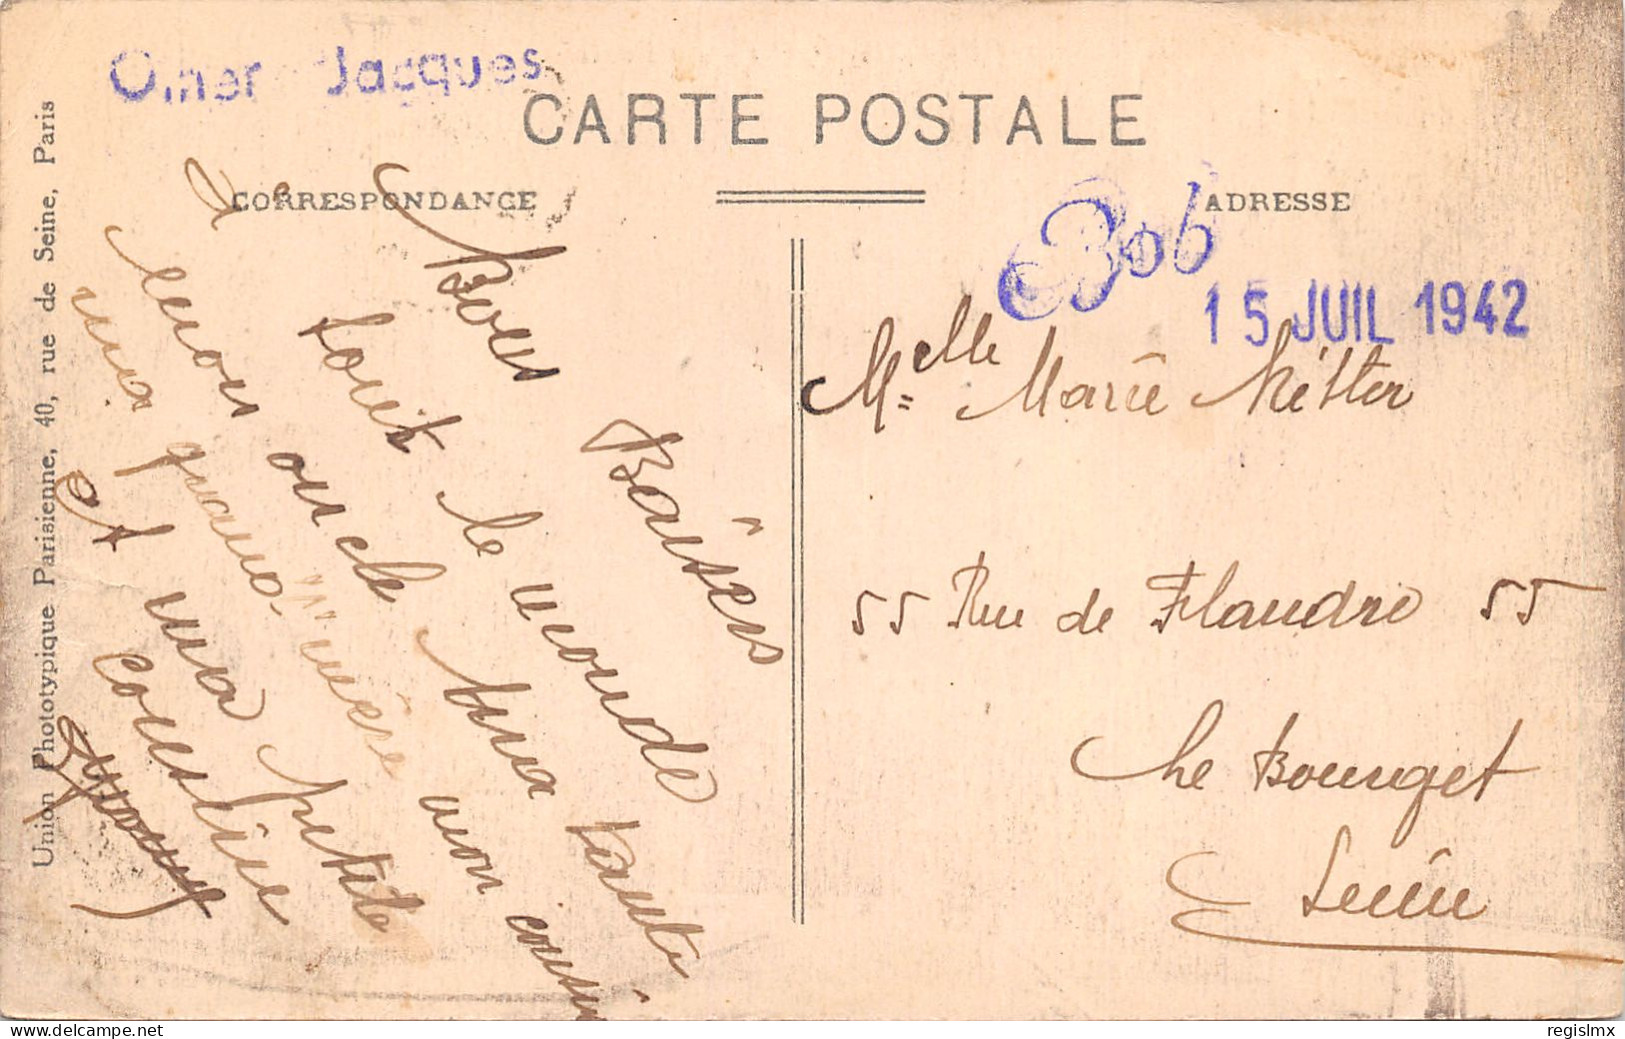 Omer Jacques
CARTE POSTALE
CORRESPONDANCE
ADRESSE
Bob
15 JUIL 1942
Bons Baisers
à tout le monde
mon oncle ma tante
ma grand mère mon cousin
et ma petite
cousine
Melle Marie
55 Rue de Flandre 55
Le Bourget
Seine
Union Phototypique Parisienne, 40, rue de Seine, Paris
www.delcampe.net
regislmx